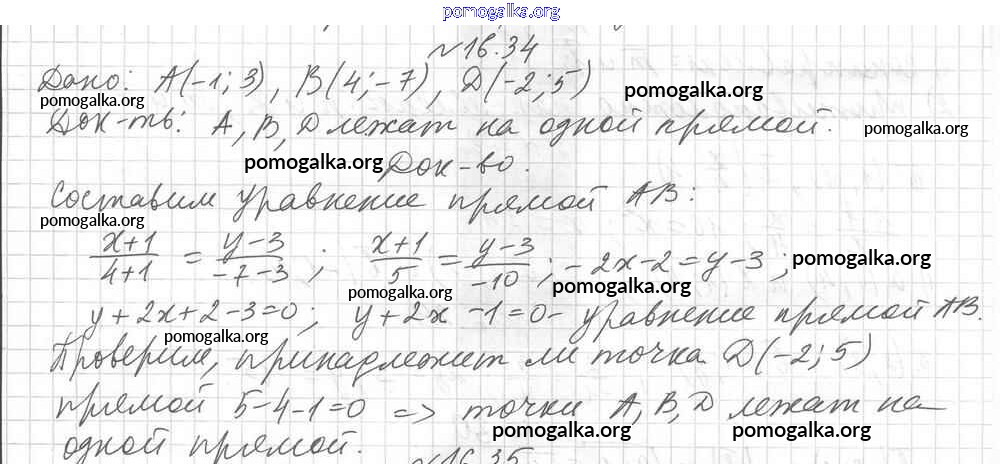 pomogalka.org
№16.34
Дано: A(-1; 3), B(4; -7), D(-2; 5)
pomogalka.org pomogalka.org
Док-ть: A, B, D лежат на одной прямой.
pomogalka.org
pomogalka.org Док-во.
Составим уравнение прямой AB:
pomogalka.org
x+1/4+1 = y-3/-7-3; x+1/5 = y-3/-10; -2x-2=y-3; pomogalka.org
pomogalka.org pomogalka.org
y+2x+2-3=0; y+2x-1=0- уравнение прямой AB.
pomogalka.org
Проверим, принадлежит ли точка D(-2; 5)
прямой 5-4-1=0 => точки A, B, D лежат на
pomogalka.org pomogalka.org
одной прямой.
№16.35